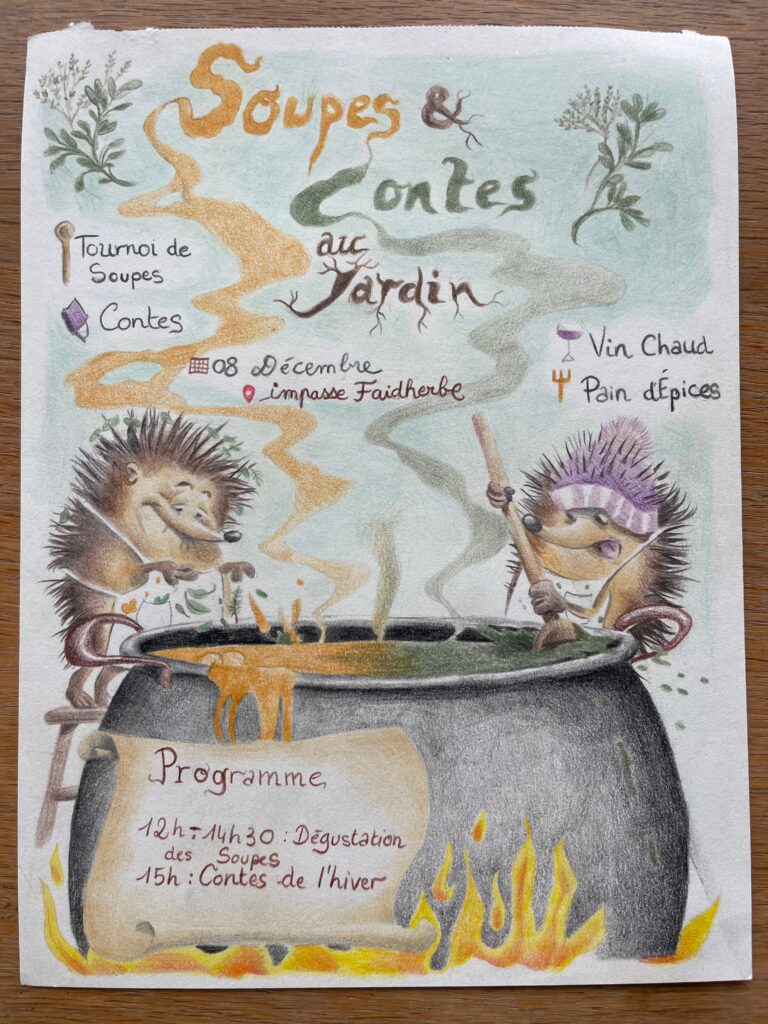 Soupes &
Contes
au
Jardin
Tournoi de
Soupes
Contes
08 Décembre
impasse Faidherbe
Vin Chaud
Pain d'Épices
Programme
12h-14h30 : Dégustation
des Soupes
15h : Contes de l'hiver